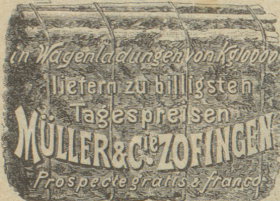 in Wagenladungen von Kg 10000
liefern zu billigsten
Tagespreisen
MÜLLER & Cie. ZOFINGEN
Prospecte gratis & franco